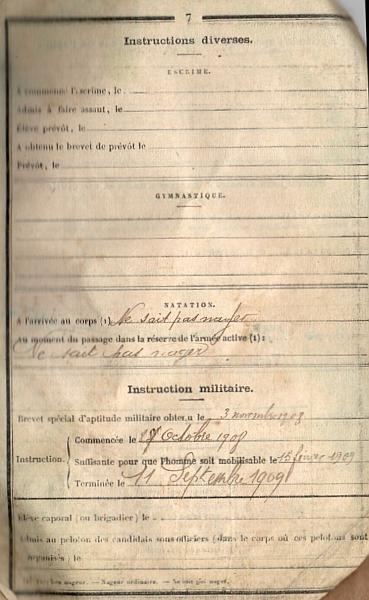 7
Instructions diverses.
ESCRIME.
A commencé l'escrime, le
Admis à faire assaut, le
Élève prévôt, le
A obtenu le brevet de prévôt le
Prévôt, le
GYMNASTIQUE.
NATATION.
A l'arrivée au corps (1) Ne sait pas nager
Au moment du passage dans la réserve de l'armée active (1):
Ne sait pas nager
Instruction militaire.
Brevet spécial d'aptitude militaire obtenu le 3 novembre 1908
Instruction.
Commencée le Octobre 1908
Suffisante pour que l'homme soit mobilisable le 15 février 1909
Terminée le 11 Septembre 1909
Élève caporal (ou brigadier) le
Admis au peloton des candidats sous-officiers (dans le corps où ces pelotons sont
organisés) le
(1) Très bon nageur. — Nageur ordinaire. — Ne sait pas nager.